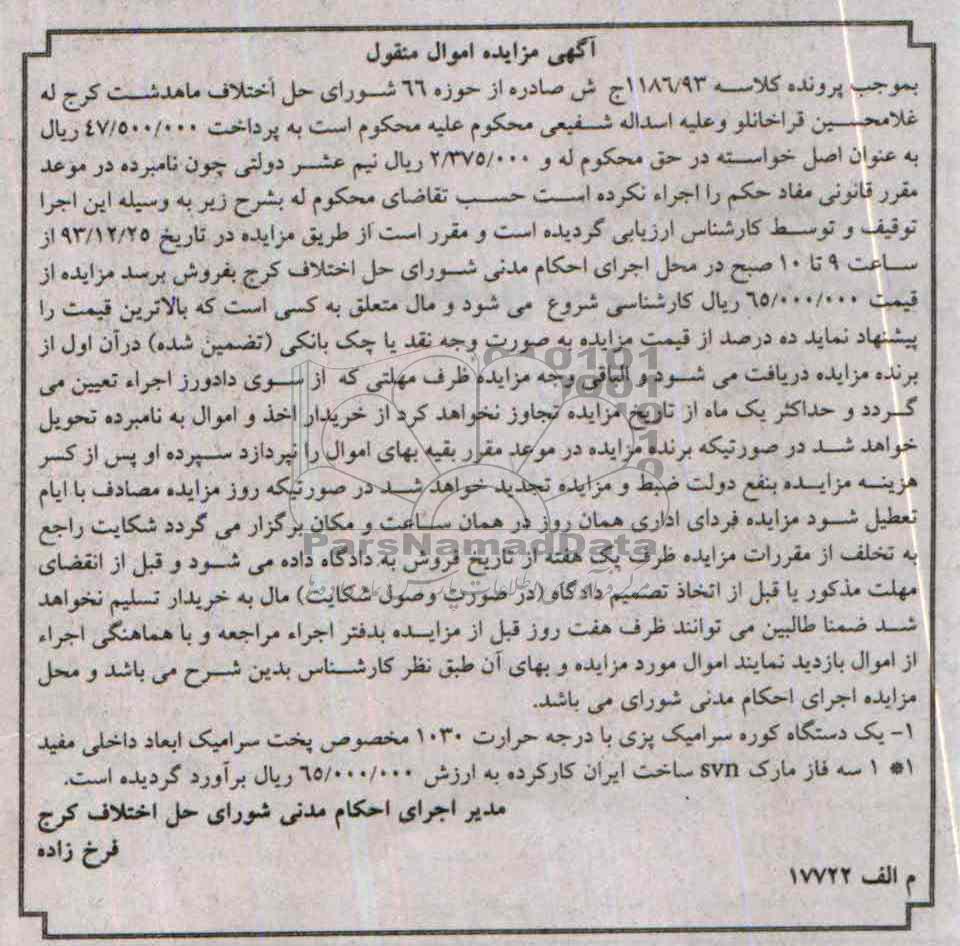 آگهی مزایده اموال منقول
بموجب پرونده کلاسه ۱۱۸۶/۹۳ج ش صادره از حوزه ۶۶ شورای حل اختلاف ماهدشت کرج له
غلامحسین قراخانلو وعلیه اسداله شفیعی محکوم علیه محکوم است به پرداخت ۴۷/۵۰۰/۰۰۰ ریال
به عنوان اصل خواسته در حق محکوم له و ۲/۳۷۵/۰۰۰ ریال نیم عشر دولتی چون نامبرده در موعد
مقرر قانونی مفاد حکم را اجراء نکرده است حسب تقاضای محکوم له بشرح زیر به وسیله این اجرا
توقیف و توسط کارشناس ارزیابی گردیده است و مقرر است از طریق مزایده در تاریخ ۹۳/۱۲/۲۵ از
ساعت ۹ تا ۱۰ صبح در محل اجرای احکام مدنی شورای حل اختلاف کرج بفروش برسد مزایده از
قیمت ۶۵/۰۰۰/۰۰۰ ریال کارشناسی شروع می شود و مال متعلق به کسی است که بالاترین قیمت را
پیشنهاد نماید ده درصد از قیمت مزایده به صورت وجه نقد یا چک بانکی (تضمین شده) درآن اول از
برنده مزایده دریافت می شود و الباقی وجه مزایده ظرف مهلتی که از سوی دادورز اجراء تعیین می
گردد و حداکثر یک ماه از تاریخ مزایده تجاوز نخواهد کرد از خریدار اخذ و اموال به نامبرده تحویل
خواهد شد در صورتیکه برنده مزایده در موعد مقرر بقیه بهای اموال را نپردازد سپرده او پس از کسر
هزینه مزایده بنفع دولت ضبط و مزایده تجدید خواهد شد در صورتیکه روز مزایده مصادف با ایام
تعطیل شود مزایده فردای اداری همان روز در همان ساعت و مکان برگزار می گردد شکایت راجع
به تخلف از مقررات مزایده ظرف یک هفته از تاریخ فروش به دادگاه داده می شود و قبل از انقضای
مهلت مذکور یا قبل از اتخاذ تصمیم دادگاه (در صورت وصول شکایت) مال به خریدار تسلیم نخواهد
شد ضمنا طالبین می توانند ظرف هفت روز قبل از مزایده بدفتر اجراء مراجعه و با هماهنگی اجراء
از اموال بازدید نمایند اموال مورد مزایده و بهای آن طبق نظر کارشناس بدین شرح می باشد و محل
مزایده اجرای احکام مدنی شورای می باشد.
۱- یک دستگاه کوره سرامیک پزی با درجه حرارت ۱۰۳۰ مخصوص پخت سرامیک ابعاد داخلی مفید
۱ * ۱ سه فاز مارک svn ساخت ایران کارکرده به ارزش ۶۵/۰۰۰/۰۰۰ ریال برآورد گردیده است.
مدیر اجرای احکام مدنی شورای حل اختلاف کرج
فرخ زاده
م الف ۱۷۷۲۲
ParsNamadData